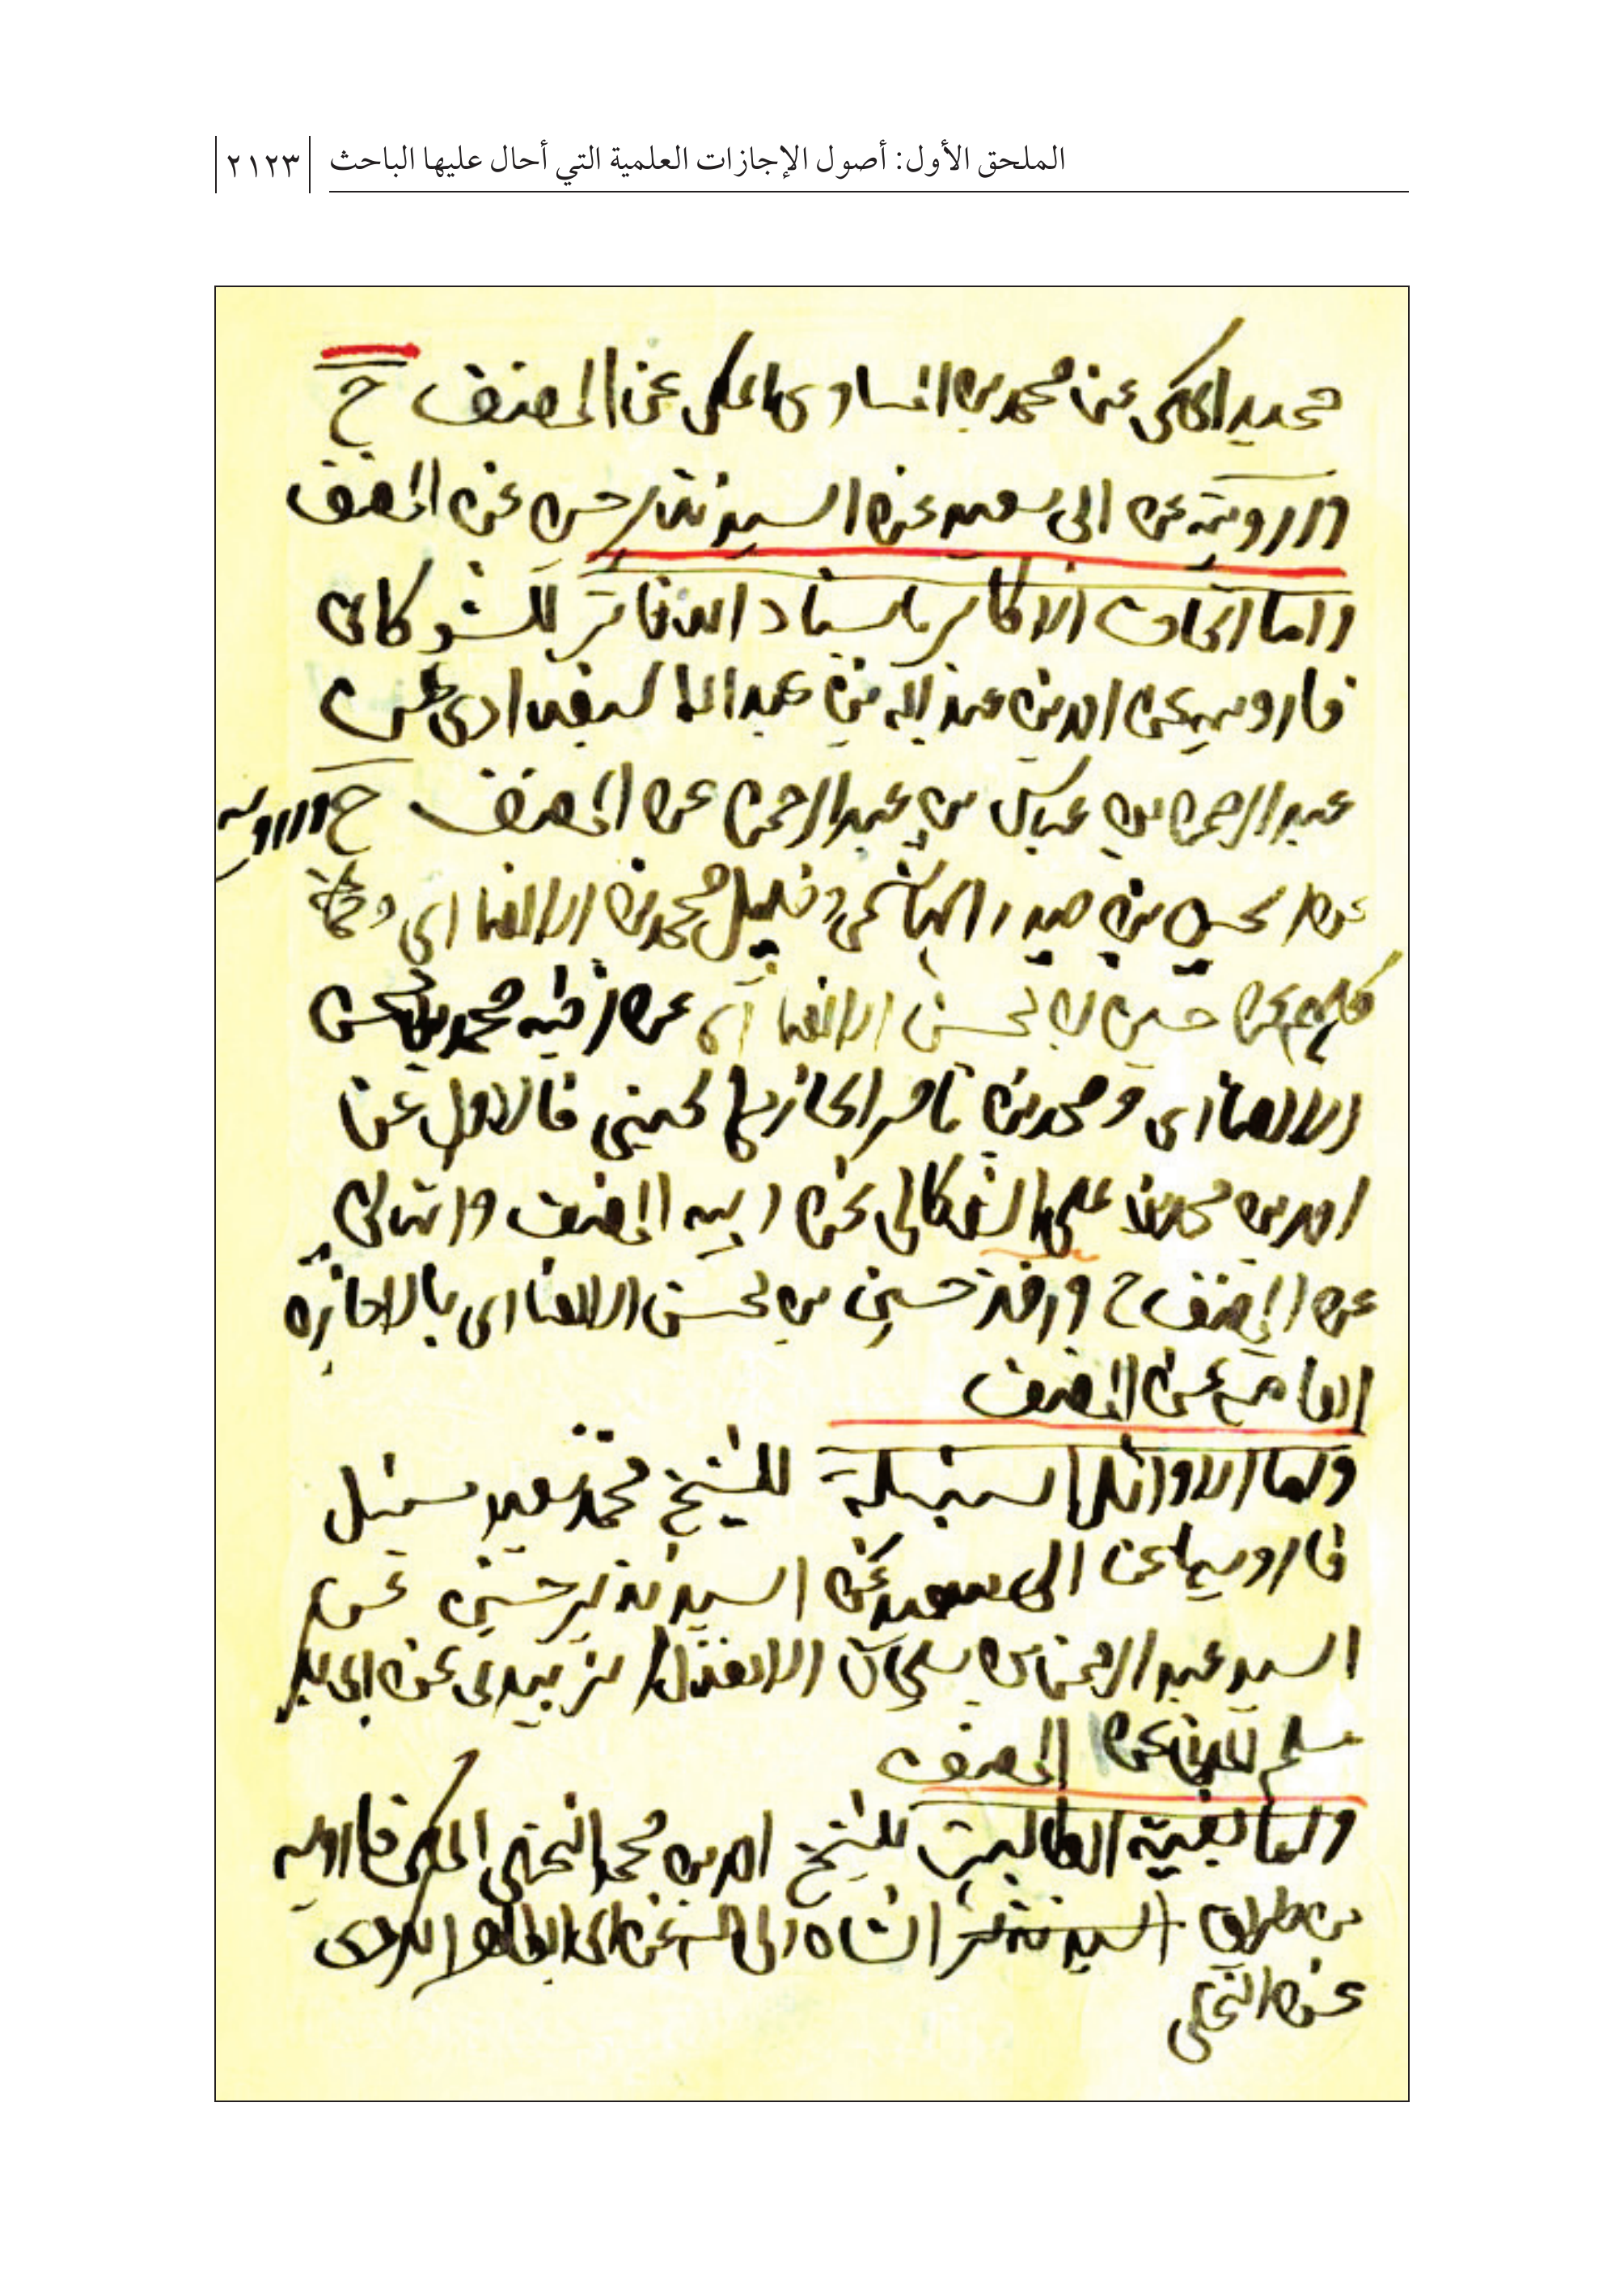 الملحق الأول: أصول الإجازات العلمية التي أحال عليها الباحث | ٢١٢٣
حميد المكي عن محمد بن المساوى عن المصنف ح
وارويه عن ابى سعيد عن السيد نذير حسين عن المصنف
واما اتحاف الاكابر باسناد الدفاتر للشوكانى
فارويه عن احمد بن عبد الله بن عبد الله البغدادى عن
عبد الرحمن بن عباس بن عبد الرحمن عن المصنف ح وارويه
عن حسين بن حيدر الهاشمى وخليل محمد بن الانصارى
كلهم عن حسين بن محسن الانصارى عن اخيه محمد بن محسن
الانصارى ومحمد بن ناصر الحازمى الحسينى فالاول عن
احمد بن محمد بن على الشوكانى عن ابيه المصنف والثانى
عن المصنف ح حسين بن محسن الانصارى بالاجازة
العامة عن المصنف
واما الاوائل السنبلية للشيخ محمد سعيد سنبل
فارويها عن ابى سعيد عن السيد نذير حسين عن
السيد عبد الرحمن بن سليمان الاهدل الزبيدى عن
عن المصنف
واما بغية الطالبين للشيخ احمد بن محمد النخلى المكى فارويه
من طريق السيد نذير الشاه ولى الله عن ابى الطاهر الكردى
عن النخلى